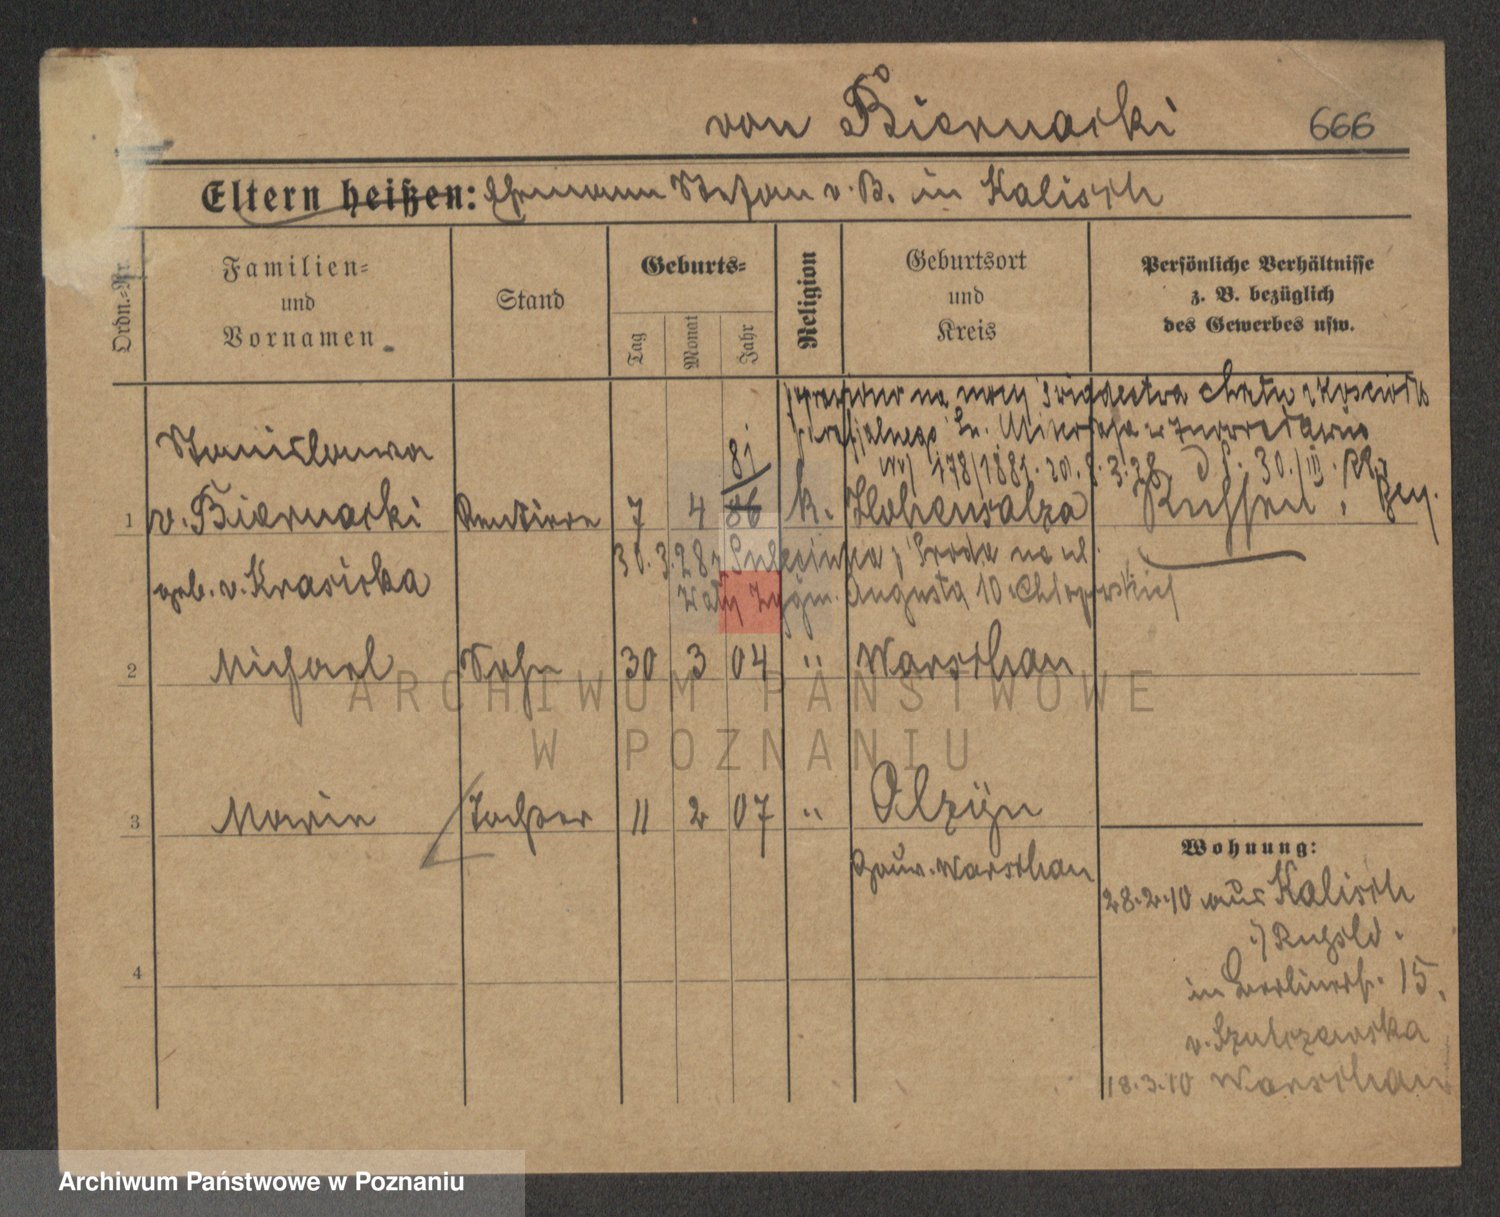 von Biernacki 666
Eltern heißen: Ehemann Stefan v. B. in Kalisch
Ordn.-Nr.
Familien-
und
Vornamen
Stand
Geburts-
Tag
Monat
Jahr
Religion
Geburtsort
und
Kreis
Persönliche Verhältnisse
z. B. bezüglich
des Gewerbes usw.
na mocy chrztu
Nr 178/1881. 20. 3. 28 30./III.
Stanislawa 81
1 v. Biernacki Rentiere 7 4 86 k. Hohensalza Russen.
30. 3. 28 Środa na ul.
geb. v. Krasicka
Wały Zygm. Augusta 10
2 Michael Sohn 30 3 04 " Warschau
ARCHIWUM PAŃSTWOWE
W POZNANIU
3 Maria Tochter 11 2 07 "
Gouv. Warschau
Wohnung:
28.2.10 aus Kalisch
i/ Rußld.
in Berlinerstr. 15.
v. Szulczewska
18.3.10 Warschau
4
Archiwum Państwowe w Poznaniu